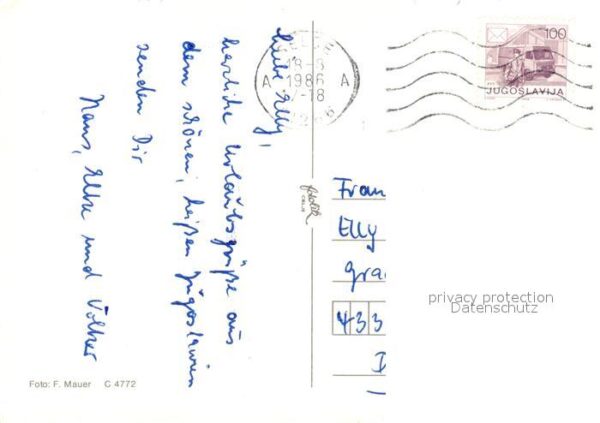 liebe Elly,
herzliche Urlaubsgrüße aus
dem schönen, heißen Jugoslawien
senden Dir
Hans, Elke und Volker
18-8
A 1986 A
-18
100
JUGOSLAVIJA
Frau
Elly
433
privacy protection
Datenschutz
Foto: F. Mauer C 4772